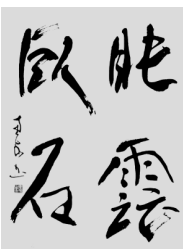 眠雲
臥石